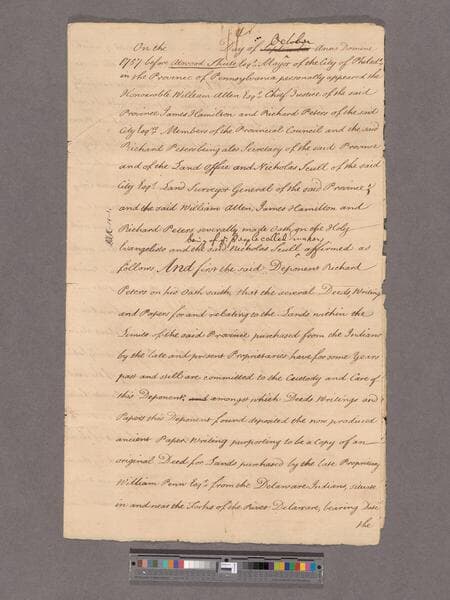 On the Day of October Anno Domini
1757 before Atwood Shute Esqr. Mayor of the City of Philada.
in the Province of Pennsylvania personally appeared the
Honourable William Allen Esqr. Chief Justice of the said
Province James Hamilton and Richard Peters of the said
City Esqrs. Members of the Provincial Council and the said
Richard Peters being also Secretary of the said Province
and of the Land Office and Nicholas Scull of the said
City Esqr. Land Surveyor General of the said Province,
and the said William Allen, James Hamilton and
Richard Peters severally made Oath on the Holy
being of ye. People called Quakers
Evangelists and the said Nicholas Scull affirmed as
follows And first the said Deponent Richard
Peters on his Oath saith, that the several Deeds, Writings
and Papers for and relating to the Lands within the
Limits of the said Province purchased from the Indians
by the late and present Proprietaries have for some Years
past and still are committed to the Custody and Care of
this Deponent, and amongst which Deeds Writings and
Papers this Deponent found deposited the now produced
ancient Paper Writing purporting to be a Copy of an
original Deed for Lands purchased by the late Proprietary
William Penn Esqr. from the Delaware Indians, situate
in and near the Forks of the River Delaware, bearing Date
the